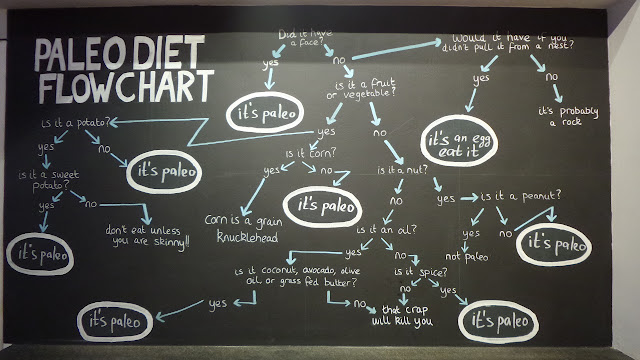 PALEO DIET
FLOWCHART
Did it have
a face?
yes
no
it's paleo
Would it have if you
didn't pull it from a nest?
yes
no
it's an egg
eat it
it's probably
a rock
is it a fruit
or vegetable?
yes
no
is it a potato?
yes
no
it's paleo
is it a sweet
potato?
yes
no
it's paleo
don't eat unless
you are skinny!!
is it corn?
yes
no
corn is a grain
knucklehead
it's paleo
is it a nut?
no
yes
is it a peanut?
yes
no
not paleo
it's paleo
is it an oil?
yes
no
is it coconut, avocado, olive
oil, or grass fed butter?
yes
no
it's paleo
is it spice?
no
yes
that crap
will kill you
it's paleo